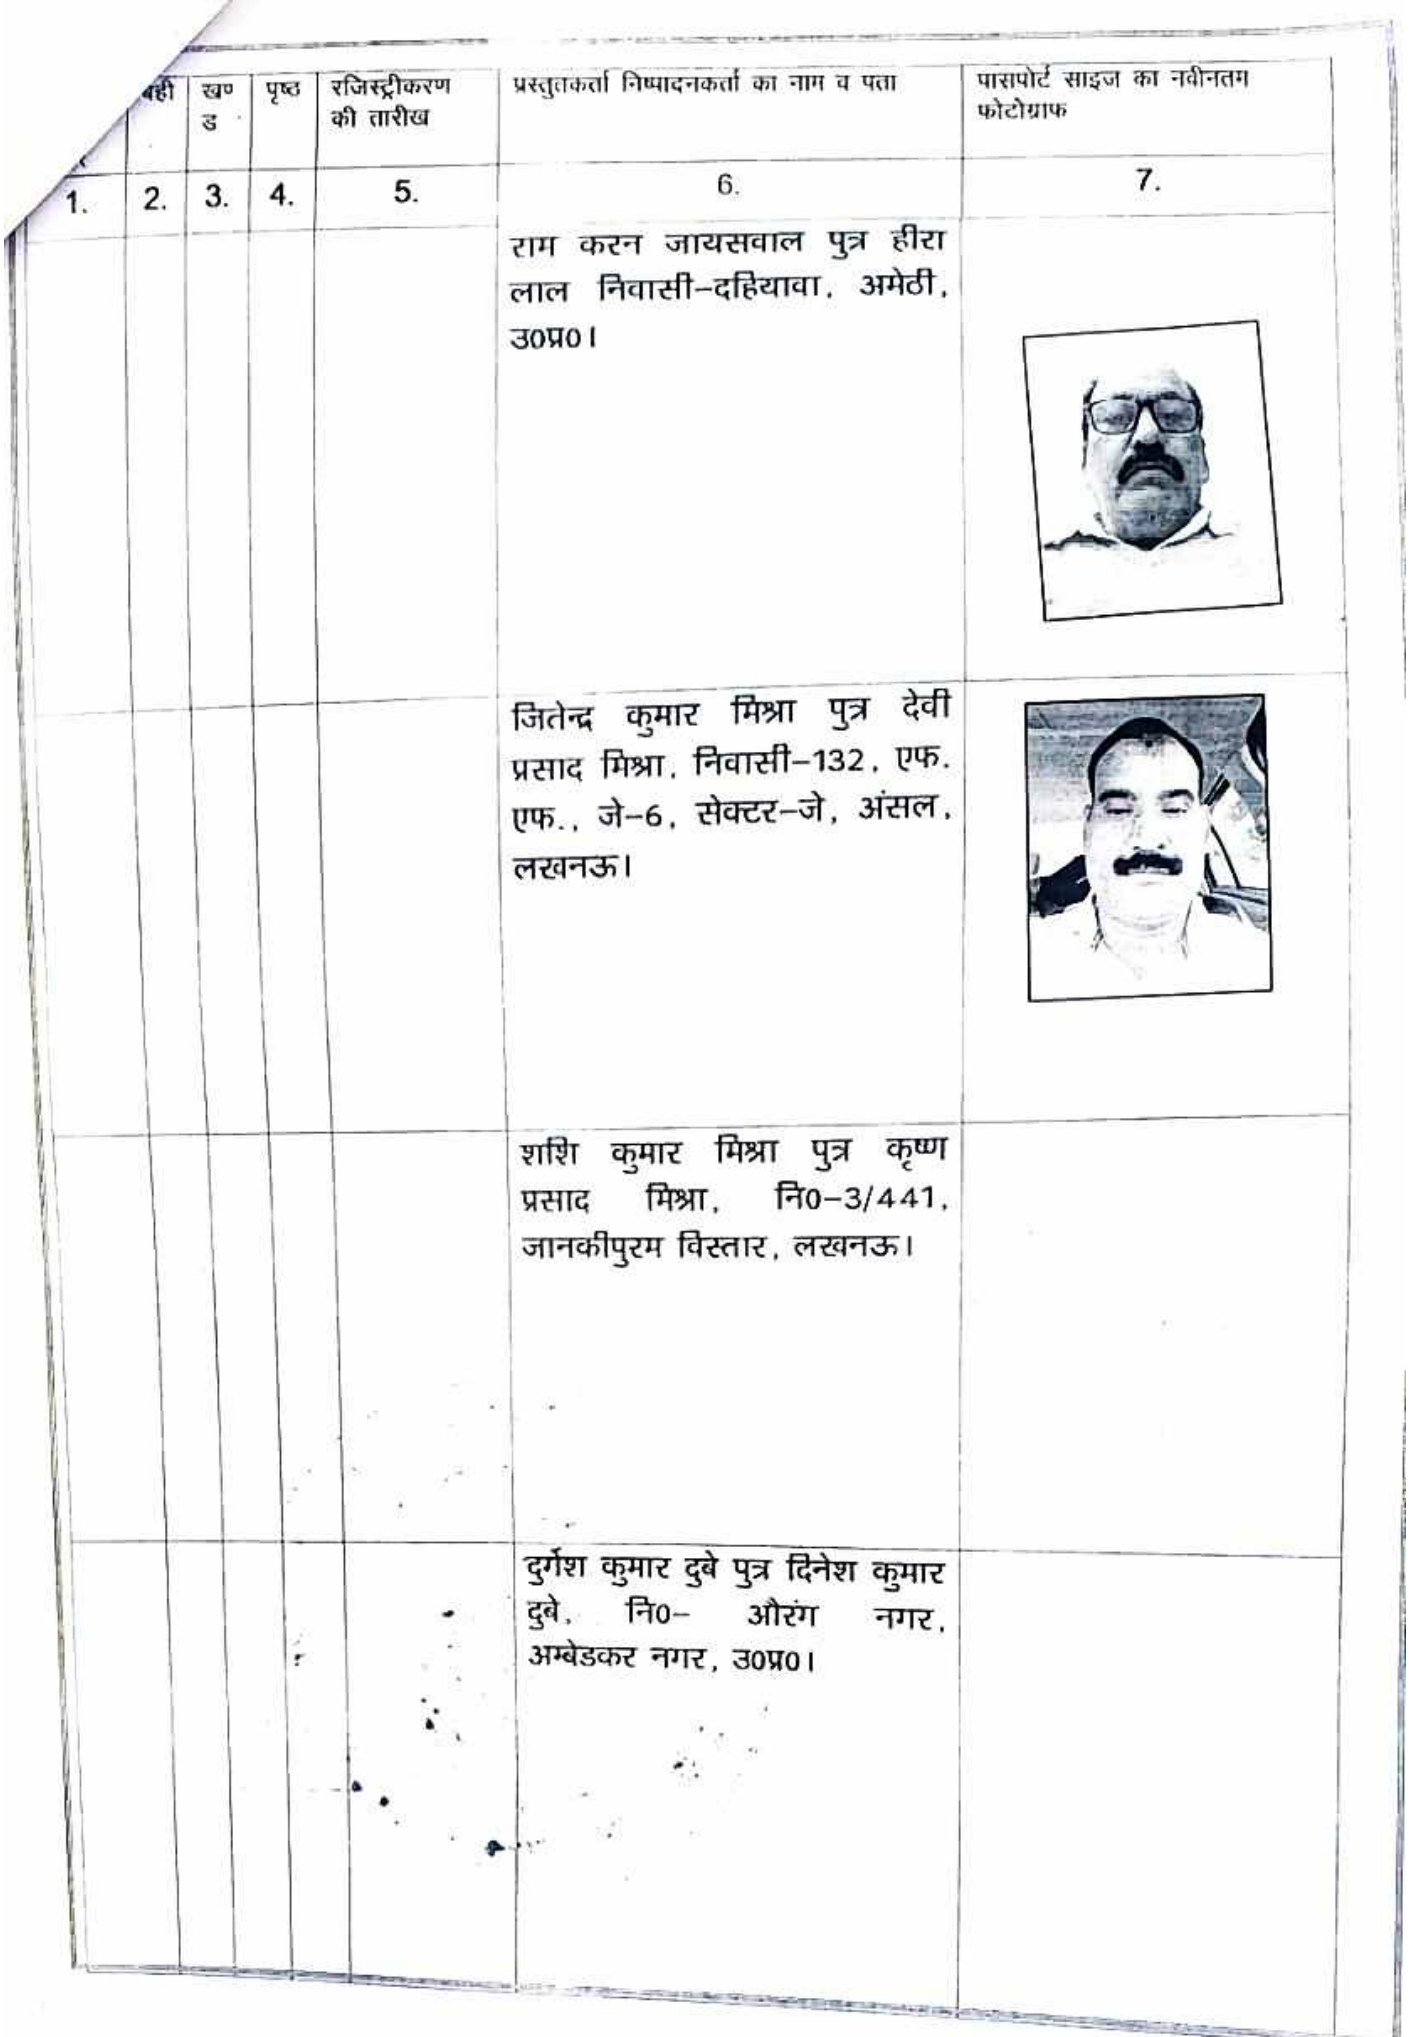 बही
खण्ड
पृष्ठ
रजिस्ट्रीकरण
की तारीख
प्रस्तुतकर्ता निष्पादनकर्ता का नाम व पता
पासपोर्ट साइज का नवीनतम
फोटोग्राफ
1. 2. 3. 4. 5. 6. 7.
राम करन जायसवाल पुत्र हीरा
लाल निवासी–दहियावा, अमेठी,
उ0प्र0।
जितेन्द्र कुमार मिश्रा पुत्र देवी
प्रसाद मिश्रा, निवासी–132, एफ.
एफ., जे–6, सेक्टर–जे, अंसल,
लखनऊ।
शशि कुमार मिश्रा पुत्र कृष्ण
प्रसाद मिश्रा, नि0–3/441,
जानकीपुरम विस्तार, लखनऊ।
दुर्गेश कुमार दुबे पुत्र दिनेश कुमार
दुबे, नि0– औरंग नगर,
अम्बेडकर नगर, उ0प्र0।